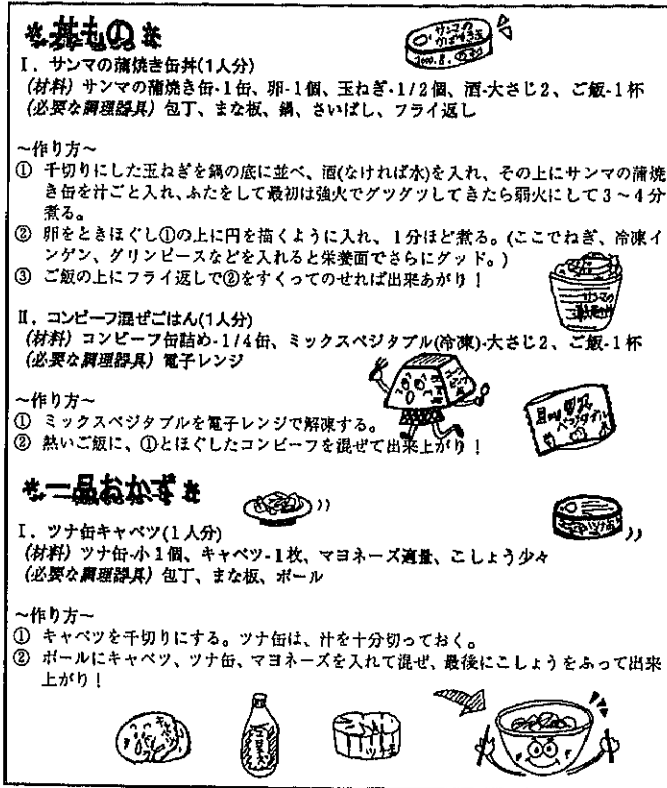 丼もの
I．サンマの蒲焼き缶丼(1人分)
(材料) サンマの蒲焼き缶-1缶、卵-1個、玉ねぎ-1/2個、酒-大さじ2、ご飯-1杯
(必要な調理器具) 包丁、まな板、鍋、さいばし、フライ返し
～作り方～
① 千切りにした玉ねぎを鍋の底に並べ、酒(なければ水)を入れ、その上にサンマの蒲焼
き缶を汁ごと入れ、ふたをして最初は強火でグツグツしてきたら弱火にして3～4分
煮る。
② 卵をときほぐし①の上に円を描くように入れ、1分ほど煮る。(ここでねぎ、冷凍イ
ンゲン、グリンピースなどを入れると栄養面でさらにグッド。)
③ ご飯の上にフライ返しで②をすくってのせれば出来あがり！
サンマの
II．コンビーフ混ぜごはん(1人分)
(材料) コンビーフ缶詰め-1/4缶、ミックスベジタブル(冷凍)-大さじ2、ご飯-1杯
(必要な調理器具) 電子レンジ
～作り方～
① ミックスベジタブルを電子レンジで解凍する。
② 熱いご飯に、①とほぐしたコンビーフを混ぜて出来上がり！
一品おかず
I．ツナ缶キャベツ(1人分)
(材料) ツナ缶-小1個、キャベツ-1枚、マヨネーズ適量、こしょう少々
(必要な調理器具) 包丁、まな板、ボール
～作り方～
① キャベツを千切りにする。ツナ缶は、汁を十分切っておく。
② ボールにキャベツ、ツナ缶、マヨネーズを入れて混ぜ、最後にこしょうをふって出来
上がり！